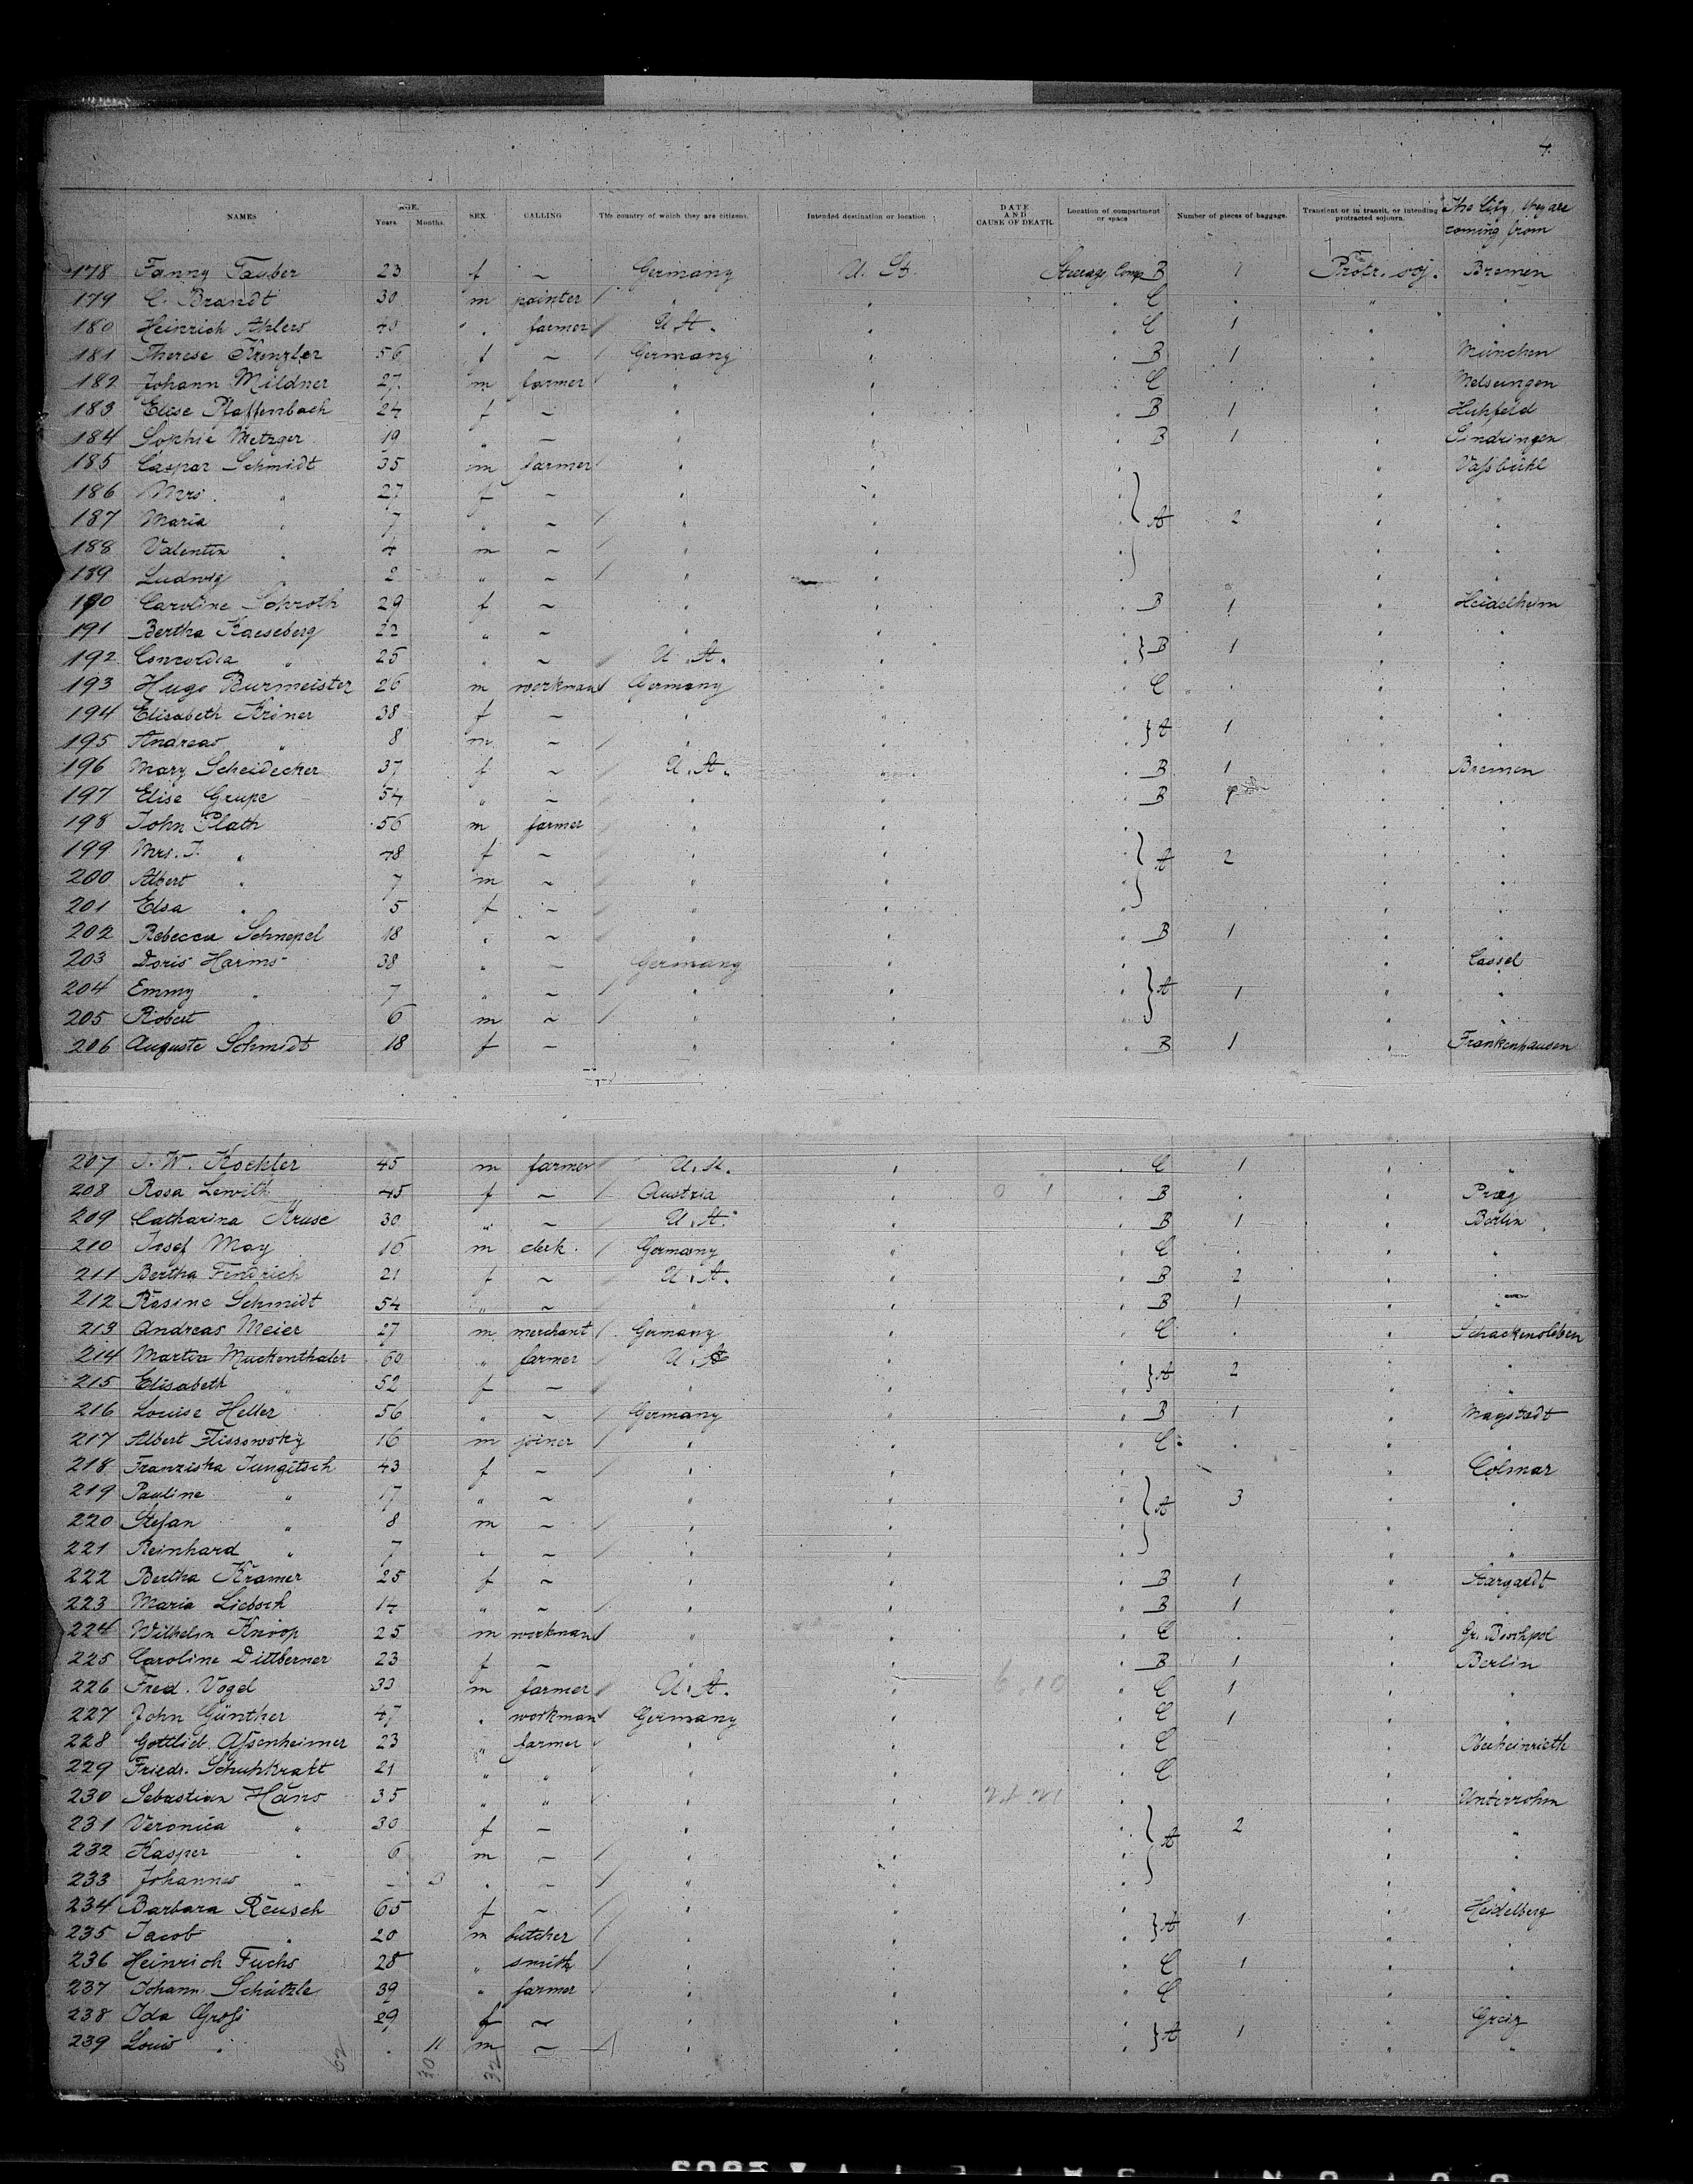 4.
NAMES AGE. Years. Months. SEX. CALLING The country of which they are citizens. Intended destination or location. DATE AND CAUSE OF DEATH. Location of compartment or space Number of pieces of baggage. Transient or in transit, or intending protracted sojourn. The City, they are coming from
178 Fanny Tauber 23 f ~ Germany U. St. Steerage Comp. B 1 Protr. soj. Bremen
179 C. Brandt 30 m painter " " " C . " "
180 Heinrich Ahlers 40 " farmer U. St. " " C 1 " "
181 Therese 56 f ~ Germany " " B 1 " München
182 Johann Mildner 27 m farmer " " " C . " Melsungen
183 Elise Pfaffenbach 24 f ~ " " " B 1 " Hünfeld
184 Sophie Metzger 19 " ~ " " " B 1 " Sindringen
185 Caspar Schmidt 35 m farmer " " " "
186 Mrs. " 27 f ~ " " " " "
187 Maria " 7 " ~ " " " A 2 " "
188 Valentin " 4 m ~ " " " " "
189 Ludwig " 2 " ~ " " " " "
190 Caroline Schroth 29 f ~ " " " B 1 " Heidelheim
191 Bertha Kaeseberg 22 " ~ " " " " "
192 Concordia " 25 " ~ U. St. " " } B 1 " "
193 Hugo Burmeister 26 m workman Germany " " C . " "
194 Elisabeth Kröner 38 f ~ " " " " "
195 Andreas " 8 m ~ " " " } A 1 " "
196 Mary Scheidecker 37 f ~ U. St. " " B 1 " Bremen
197 Elise Grupe 54 " ~ " " " B 1 " "
198 John Plath 56 m farmer " " " " "
199 Mrs. J. " 48 f ~ " " " A 2 " "
200 Albert " 7 m ~ " " " " "
201 Elsa " 5 f ~ " " " " "
202 Rebecca Schnepel 18 " ~ " " " B 1 " "
203 Doris Harms 38 " ~ Germany " " " Cassel
204 Emmy " 7 " ~ " " " } A 1 " "
205 Robert " 6 m ~ " " " " "
206 Auguste Schmidt 18 f ~ " " " B 1 " Frankenhausen
207 J. W. Kockler 45 m farmer U. St. " " C 1 " "
208 Rosa Lewith 45 f ~ Austria " " B . " Prag
209 Catharina Kruse 30 " ~ U. St. " " B 1 " Berlin
210 Josef May 16 m clerk Germany " " C . " "
211 Bertha Fendrich 21 f ~ U. St. " " B 2 " "
212 Rosine Schmidt 54 " ~ " " " B 1 " "
213 Andreas Meier 27 m merchant Germany " " C . " Schackensleben
214 Martin Muckenthaler 60 " farmer U. St. " " " "
215 Elisabeth " 52 f ~ " " " } A 2 " "
216 Louise Heller 56 " ~ Germany " " B 1 " Magstadt
217 Albert Flissowsky 16 m joiner " " " C . " "
218 Franziska Jungitsch 43 f ~ " " " " Colmar
219 Pauline " 17 " ~ " " " A 3 " "
220 Stefan " 8 m ~ " " " " "
221 Reinhard " 7 " ~ " " " " "
222 Bertha Kramer 25 f ~ " " " B 1 " Stargardt
223 Maria Liebsch 14 " ~ " " " B 1 " "
224 Wilhelm Knoop 25 m workman " " " C . " Gr. Boschpol
225 Caroline Dittberner 23 f ~ " " " B 1 " Berlin
226 Fred. Vogel 33 m farmer U. St. " " C 1 " "
227 John Günther 47 " workman Germany " " C 1 " "
228 Gottlieb Assenheimer 23 " farmer " " " C " Oberheinrieth
229 Friedr. Schuhkraft 21 " " " " " C " "
230 Sebastian Hans 35 " " " " " " Unterrohm
231 Veronica " 30 f ~ " " " A 2 " "
232 Kasper " 6 m ~ " " " " "
233 Johannes " - 3 " ~ " " " " "
234 Barbara Reusch 65 f ~ " " " " Heidelberg
235 Jacob " 20 m butcher " " " } A 1 " "
236 Heinrich Fuchs 28 " smith " " " C 1 " "
237 Johann Schützle 39 " farmer " " " C " "
238 Ida Groß 29 f ~ " " " " Greiz
239 Louis " . 11 m ~ " " " } A 1 " "
62 30 32